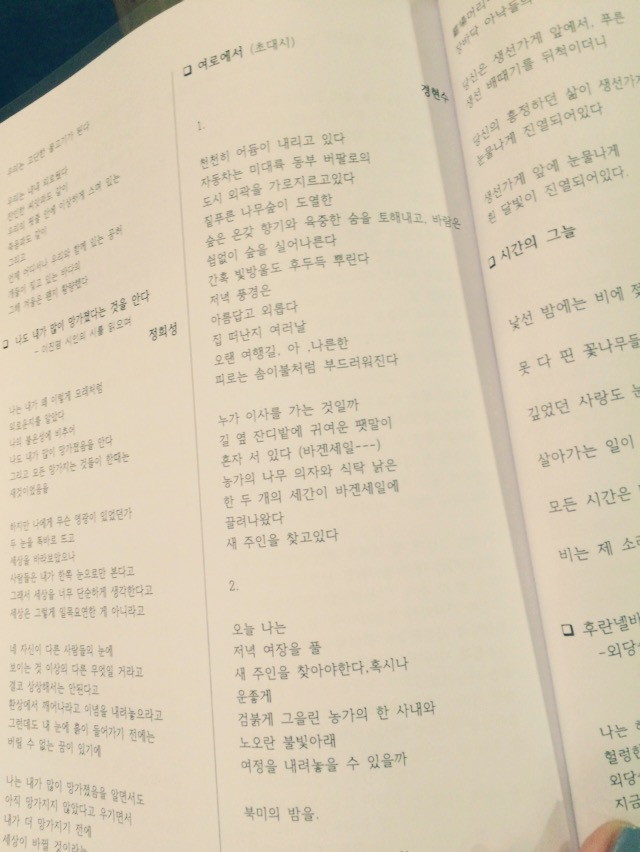 우리는 고단한 물고기가 된다
우리는 내내 외로웠다
우리의 몸줄 안에 이상하게 스며 있는
죽음과도 같이
그리고
언제 어디서나 우리와 함께 있는 공허
겨울이 찢고 있는 바다의
그해 겨울은 왠지 황량했다
❏ 나도 내가 많이 망가졌다는 것을 안다
- 이진명 시인의 시를 읽으며
정희성
나는 내가 왜 이렇게 모래처럼
외로운지를 알았다
나의 불온성에 비추어
나도 내가 많이 망가졌음을 안다
그리고 모든 망가지는 것들이 한때는
새것이었음을
하지만 나에게 무슨 영광이 있었던가
두 눈을 똑바로 뜨고
세상을 바라보았으나
사람들은 내가 한쪽 눈으로만 본다고
그래서 세상을 너무 단순하게 생각한다고
세상은 그렇게 일목요연한 게 아니라고
네 자신이 다른 사람들의 눈에
보이는 것 이상의 다른 무엇일 거라고
결코 상상해서는 안된다고
환상에서 깨어나라고 이념을 내려놓으라고
그런데도 내 눈에 흙이 들어가기 전에는
버릴 수 없는 꿈이 있기에
나는 내가 많이 망가졌음을 알면서도
아직 망가지지 않았다고 우기면서
내가 더 망가지기 전에
세상이 바뀔 것이라는
❏ 여로에서 (초대시)
경현수
1.
천천히 어둠이 내리고 있다
자동차는 미대륙 동부 버팔로의
도시 외곽을 가로지르고있다
짙푸른 나무숲이 도열한
숲은 온갖 향기와 육중한 숨을 토해내고, 바람은
쉼없이 숲을 실어나른다
간혹 빛방울도 후두득 뿌린다
저녁 풍경은
아름답고 외롭다
집 떠난지 여러날
오랜 여행길, 아 ,나른한
피로는 솜이불처럼 부드러워진다
누가 이사를 가는 것일까
길 옆 잔디밭에 귀여운 팻말이
혼자 서 있다 (바겐세일---)
농가의 나무 의자와 식탁 낡은
한 두 개의 세간이 바겐세일에
끌려나왔다
새 주인을 찾고있다
2.
오늘 나는
저녁 여장을 풀
새 주인을 찾아야한다.혹시나
운좋게
검붉게 그을린 농가의 한 사내와
노오란 불빛아래
여정을 내려놓을 수 있을까
북미의 밤을.
당신은 생선가게 앞에서, 푸른
생선 배때기를 뒤척이더니
당신의 흥정하던 삶이 생선가게
눈물나게 진열되어있다
생선가게 앞에 눈물나게
흰 달빛이 진열되어있다.
❏ 시간의 그늘
낯선 밤에는 비에 젖
못 다 핀 꽃나무들
깊었던 사랑도 눈
살아가는 일이
모든 시간은
비는 제 소리
❏ 후란넬바
-외당숙
나는
헐렁한
외당
지금